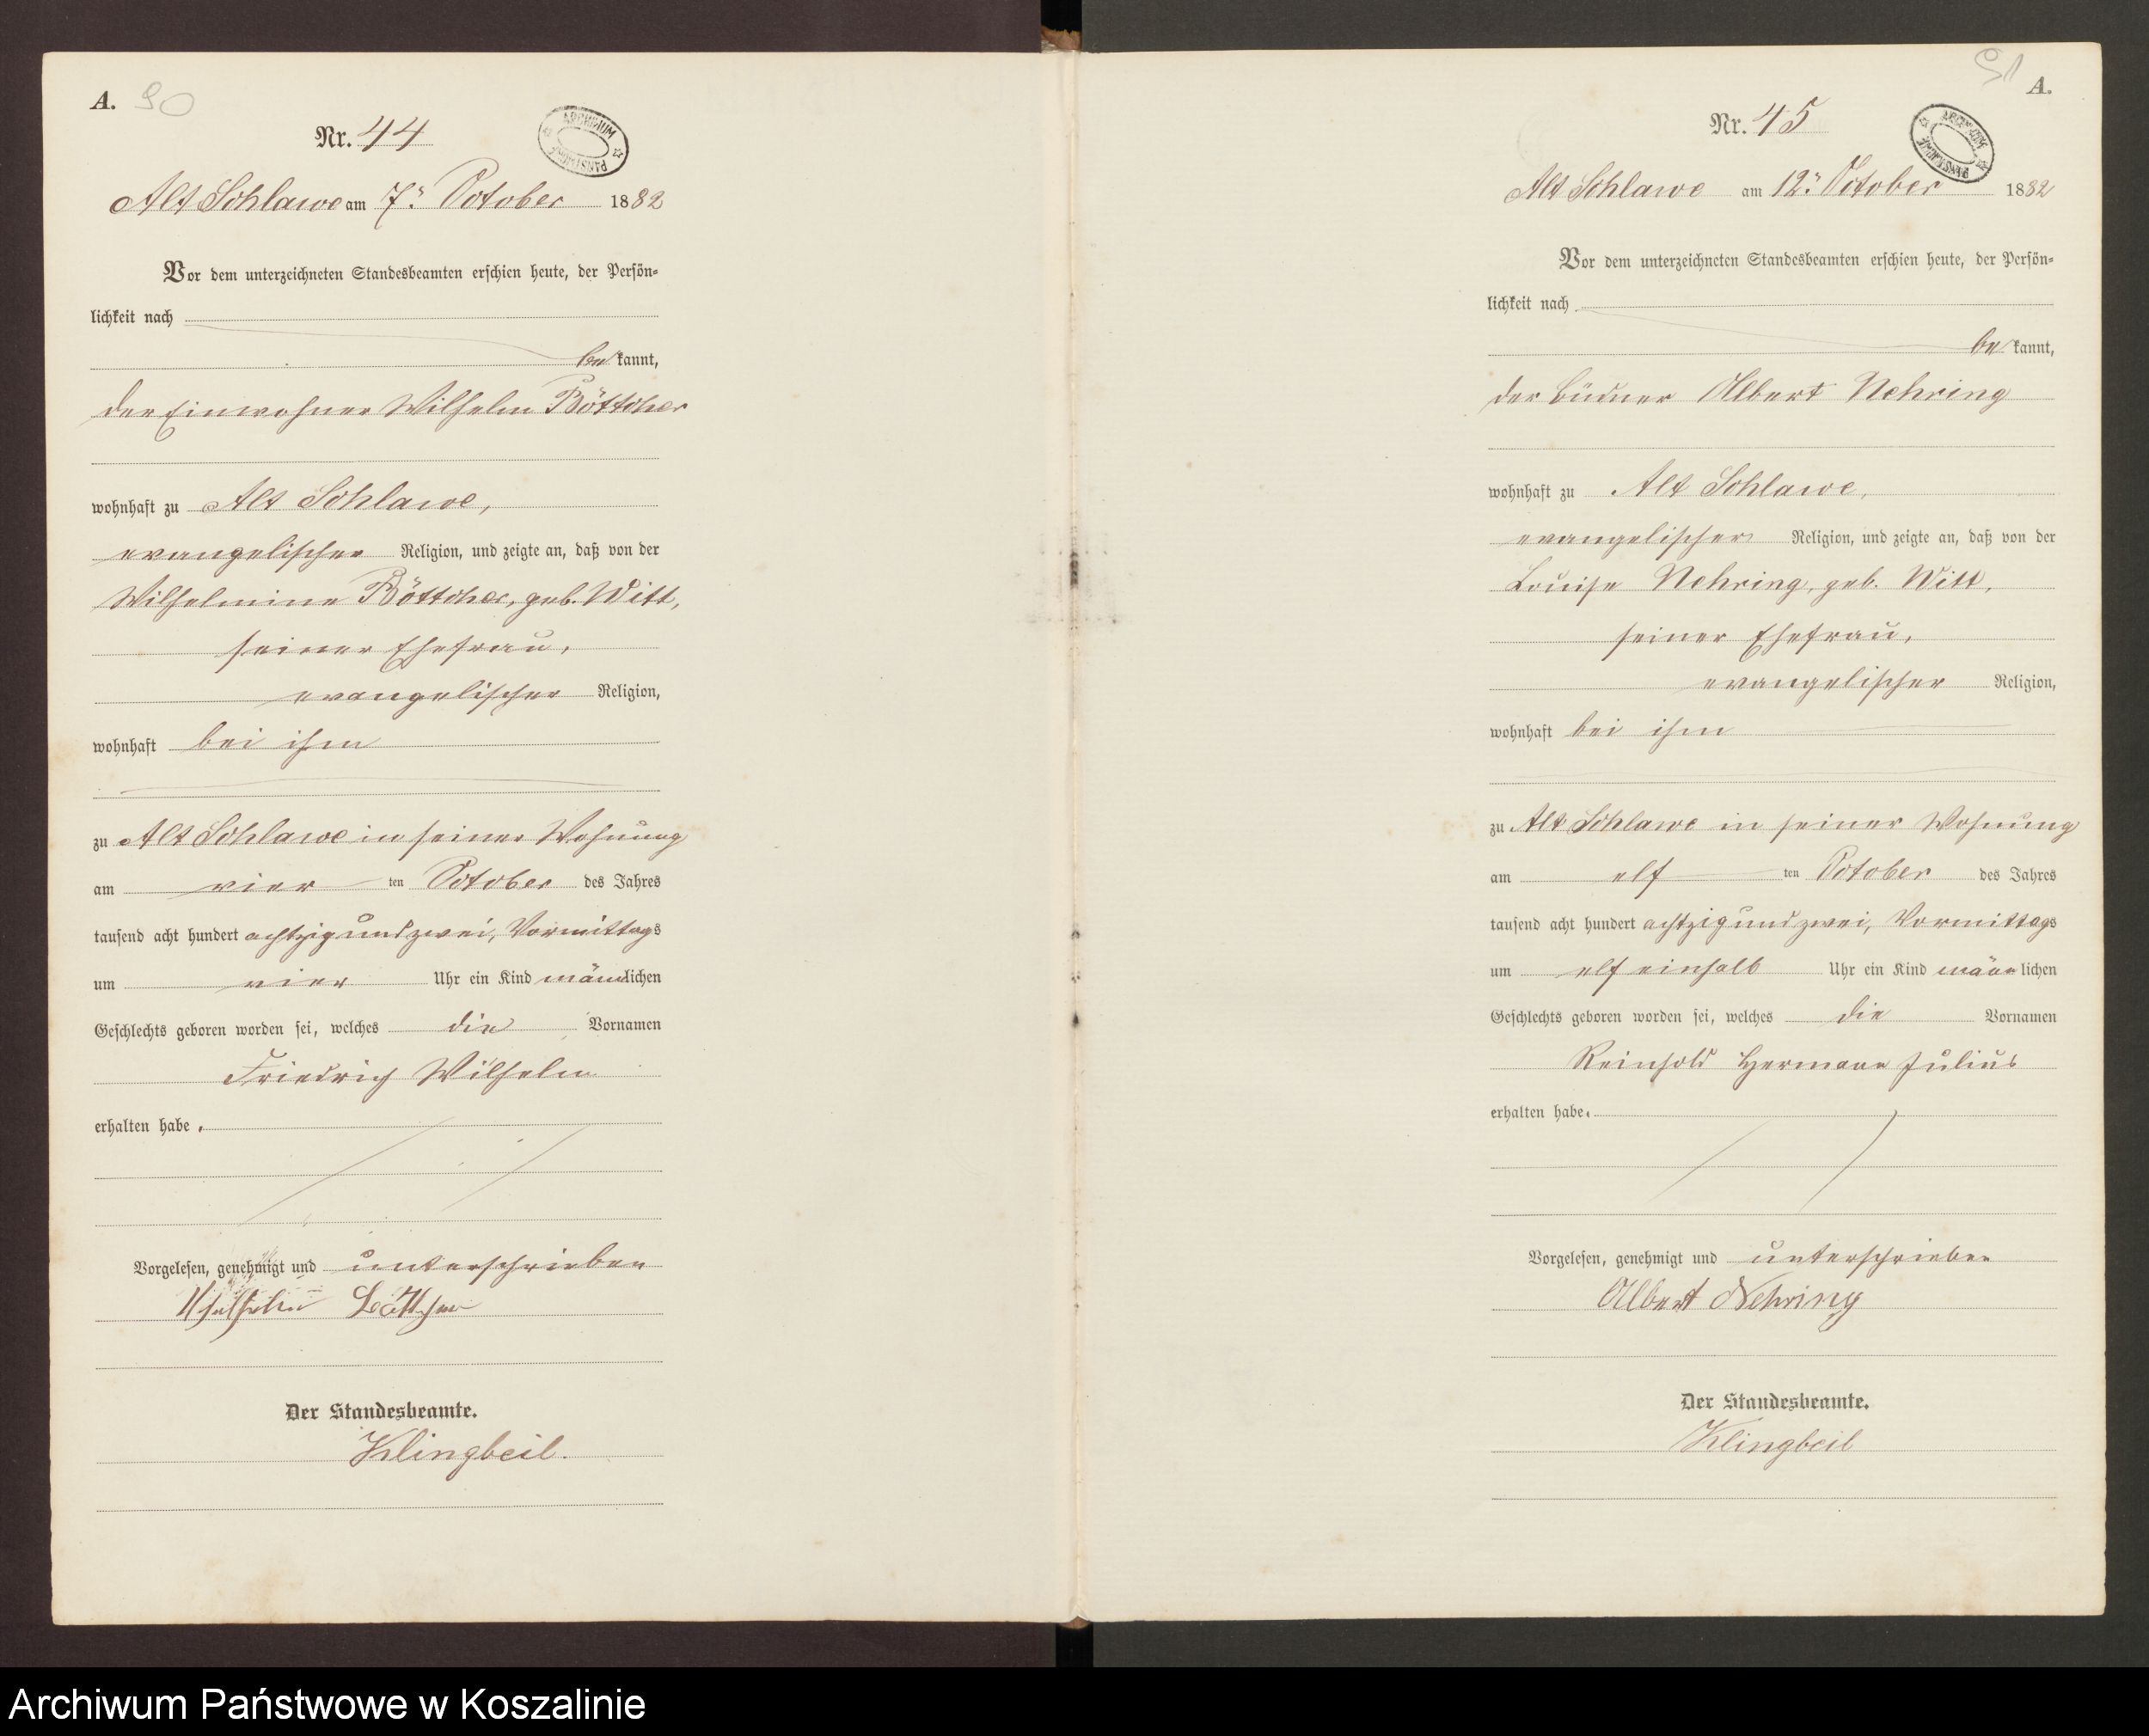 A. 50
Nr. 44
ARCHIWUM PAŃSTWOWE
Alt Schlawe am 7ⁿ October 1882
Vor dem unterzeichneten Standesbeamten erschien heute, der Persön-
lichkeit nach
bekannt,
der Einwohner Wilhelm Böttcher
wohnhaft zu Alt Schlawe,
evangelischer Religion, und zeigte an, daß von der
Wilhelmine Böttcher, geb. Witt,
seiner Ehefrau,
evangelischer Religion,
wohnhaft bei ihm
zu Alt Schlawe in seiner Wohnung
am vier ten October des Jahres
tausend acht hundert achtzig und zwei, Vormittags
um vier Uhr ein Kind männlichen
Geschlechts geboren worden sei, welches die Vornamen
Friedrich Wilhelm
erhalten habe.
Vorgelesen, genehmigt und unterschrieben
Wilhelm Böttcher
Der Standesbeamte.
Klingbeil.
51 A.
Nr. 45
ARCHIWUM PAŃSTWOWE
Alt Schlawe am 12ⁿ October 1882
Vor dem unterzeichneten Standesbeamten erschien heute, der Persön-
lichkeit nach
bekannt,
der Büdner Albert Nehring
wohnhaft zu Alt Schlawe,
evangelischer Religion, und zeigte an, daß von der
Louise Nehring, geb. Witt,
seiner Ehefrau,
evangelischer Religion,
wohnhaft bei ihm
zu Alt Schlawe in seiner Wohnung
am elf ten October des Jahres
tausend acht hundert achtzig und zwei, Vormittags
um elf einhalb Uhr ein Kind männlichen
Geschlechts geboren worden sei, welches die Vornamen
Reinhold Hermann Julius
erhalten habe.
Vorgelesen, genehmigt und unterschrieben
Albert Nehring
Der Standesbeamte.
Klingbeil
Archiwum Państwowe w Koszalinie